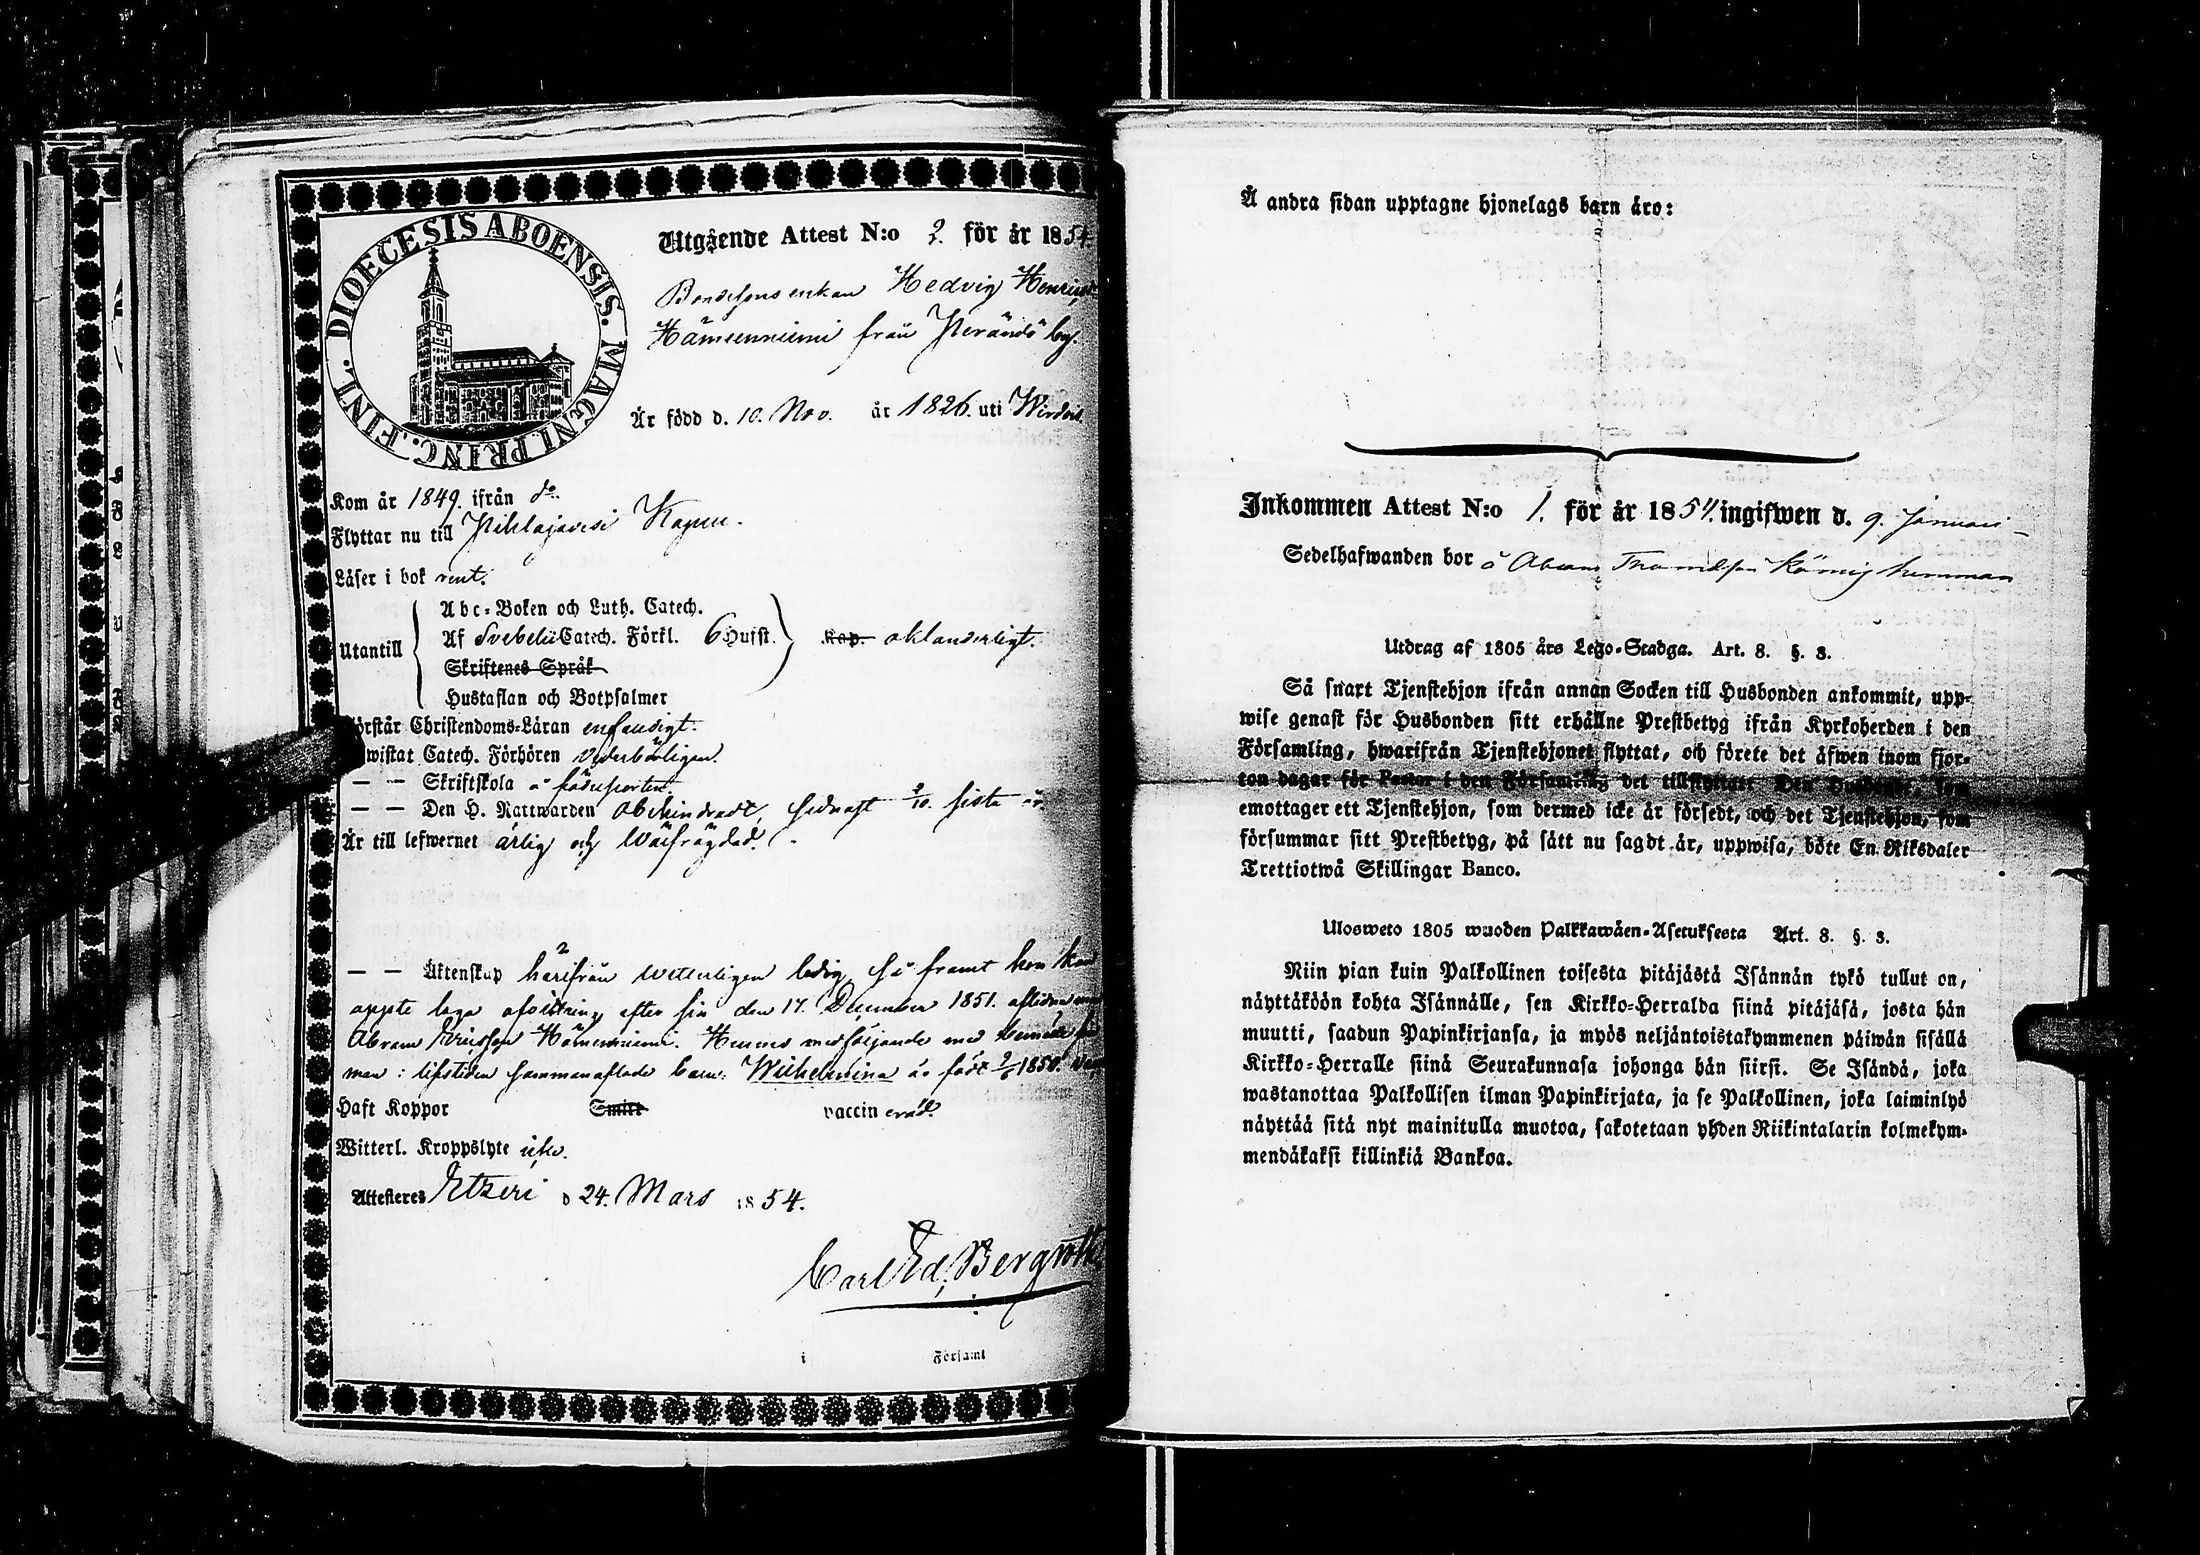 DIOECESIS ABOENSIS. MAGNI PRINC. FINL.
Utgående Attest N:o 2. för år 1854.
Bondesonsenkan Hedvig
Hämeenniemi från by.
Är född d. 10. Nov. år 1826. uti
Kom år 1849. ifrån do.
Flyttar nu till Pihlajavesi
Läser i bok rent.
Utantill
Abc-Boken och Luth. Catech.
Af Svebelii Catech. Förkl. 6 Hufst. Kap. oklanderligt.
Skriftenes Språk
Hustaflan och Botpsalmer
Förstår Christendoms-Läran enfaldigt.
Bewistat Catech. Förhören vederbörligen.
— — Skriftskola å födelseorten.
— — Den H. Nattwarden obehindradt, sednast sista år
Är till lefwernet ärlig och wälfrägdad.
— — Äktenskap härifrån wetterligen ledig så framt hon kan
uppte laga afvittring efter sin den 17. December 1851. aflidna man
Abram Ericsson Hämeenniemi. Hennes medföljande med bemälte
man i lifstiden sammanaflade barn: Wilhelmina är född 1850.
Haft Koppor Smitt vaccin erad.
Witterl. Kroppslyte icke.
Attesteres Etzeri d 24. Mars 1854.
Carl Ed. Bergroth
i Församl
Å andra sidan upptagne hjonelags barn äro:
Inkommen Attest N:o 1. för år 1854. ingifwen d. 9. Januari
Sedelhafwanden bor å Abram hemman
Utdrag af 1805 års Lego-Stadga. Art. 8. §. 3.
Så snart Tjenstehjon ifrån annan Socken till Husbonden ankommit, upp-
wise genast för Husbonden sitt erhållne Prestbetyg ifrån Kyrkoherden i den
Församling, hwarifrån Tjenstehjonet flyttat, och förete det äfwen inom fjor-
ton dagar för Pastor i den Församling det tillflyttat. Den Husbonde, som
emottager ett Tjenstehjon, som dermed icke är försedt, och det Tjenstehjon, som
försummar sitt Prestbetyg, på sätt nu sagdt är, uppwisa, böte En Riksdaler
Trettiotwå Skillingar Banco.
Ulosweto 1805 wuoden Palkkawäen-Asetuksesta Art. 8. §. 3.
Niin pian kuin Palkollinen toisesta pitäjästä Isännän tykö tullut on,
näyttäköön kohta Isännälle, sen Kirkko-Herralda siinä pitäjäsä, josta hän
muutti, saadun Papinkirjansa, ja myös neljäntoistakymmenen päiwän sisällä
Kirkko-Herralle siinä Seurakunnasa johonga hän siirsi. Se Isändä, joka
wastanottaa Palkollisen ilman Papinkirjata, ja se Palkollinen, joka laiminlyö
näyttää sitä nyt mainitulla muotoa, sakotetaan yhden Riikintalarin kolmekym-
mendäkaksi killinkiä Bankoa.